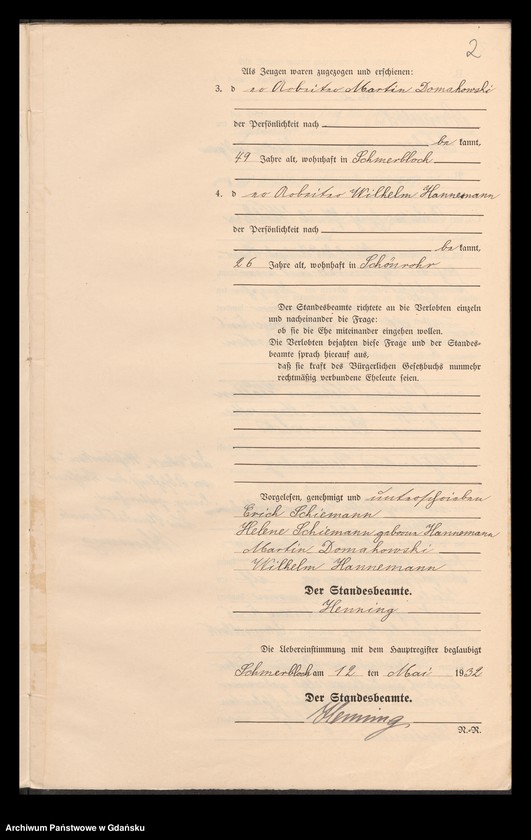 2
Als Zeugen waren zugezogen und erschienen:
3. d er Arbeiter Martin Domakowski
der Persönlichkeit nach
be kannt,
49 Jahre alt, wohnhaft in Schmerblock
4. d er Arbeiter Wilhelm Hannemann
der Persönlichkeit nach
be kannt,
26 Jahre alt, wohnhaft in Schönrohr
Der Standesbeamte richtete an die Verlobten einzeln
und nacheinander die Frage:
ob sie die Ehe miteinander eingehen wollen.
Die Verlobten bejahten diese Frage und der Standes-
beamte sprach hierauf aus,
daß sie kraft des Bürgerlichen Gesetzbuchs nunmehr
rechtmäßig verbundene Eheleute seien.
Vorgelesen, genehmigt und unterschrieben
Erich Schiemann
Helene Schiemann geborene Hannemann
Martin Domakowski
Wilhelm Hannemann
Der Standesbeamte.
Henning
Die Uebereinstimmung mit dem Hauptregister beglaubigt
Schmerblock am 12 ten Mai 1932
Der Standesbeamte.
Henning
N.-R.
Archiwum Państwowe w Gdańsku